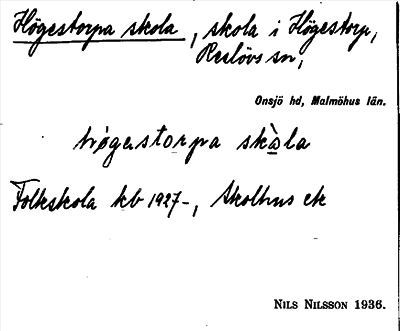 Högestorpa skola, skola i Högestorp,
Reslövs sn,
Onsjö hd, Malmöhus län.
högastorpa skola
Folkskola kb 1927-, Skolhus ek
NILS NILSSON 1936.